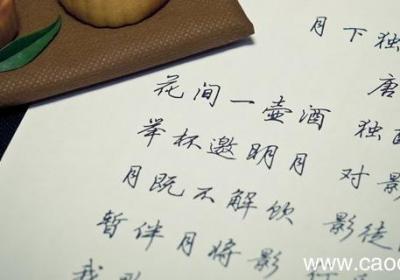 月下独
唐
花间一壶酒 独
举杯邀明月 对影
月既不解饮 影徒
暂伴月将影
我
www.caoc